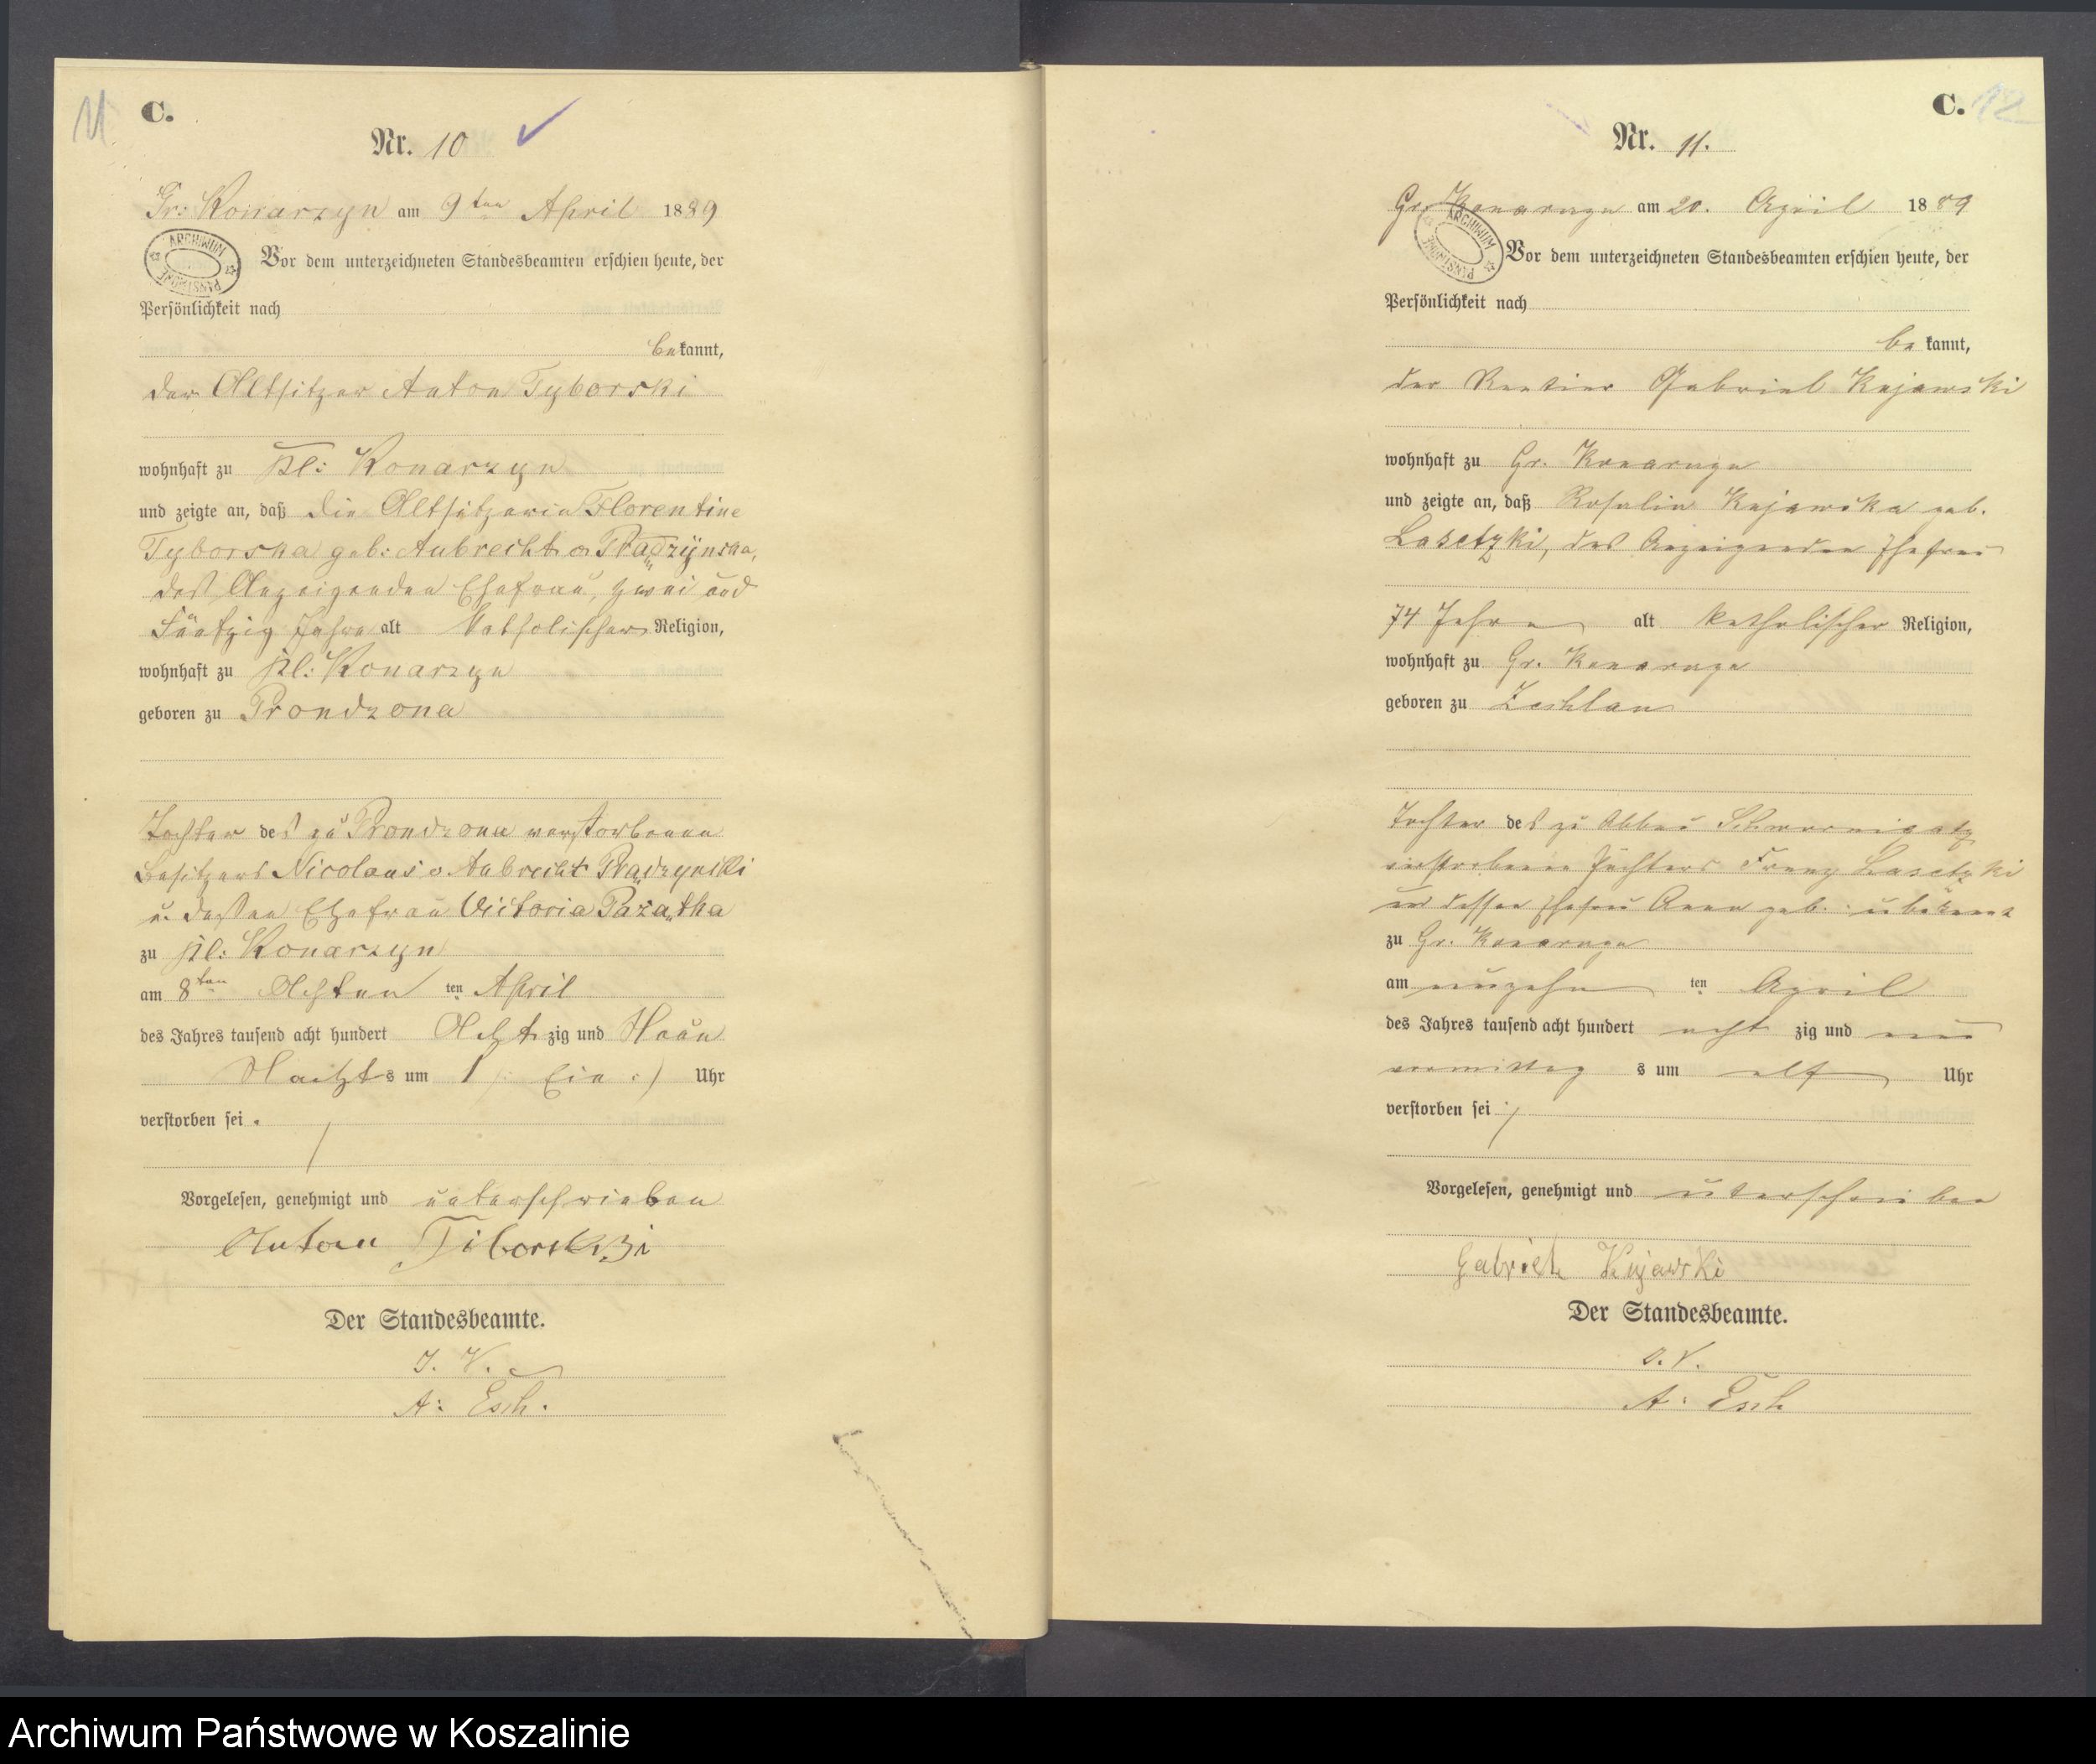 11
C.
Nr. 10
Gr: Konarzyn am 9ten April 1889
ARCHIWUM PAŃSTWOWE
Vor dem unterzeichneten Standesbeamten erschien heute, der
Persönlichkeit nach
bekannt,
der Altsitzer Anton Tyborski
wohnhaft zu Kl: Konarzyn
und zeigte an, daß die Altsitzerin Florentine
Tyborska geb: Aubrecht a Prądzÿnska,
des Anzeigenden Ehefrau, zwei und
Füntzig Jahre alt Katholischer Religion,
wohnhaft zu Kl: Konarzyn
geboren zu Prondzona
Tochter des zu Prondzona verstorbenen
Besitzers Nicolaus v. Aubrecht Prądzynski
u. dessen Ehefrau Victoria
zu Kl: Konarzyn
am 8ten Achten ten April
des Jahres tausend acht hundert Acht zig und Neun
Nachts um 1 (: Ein :) Uhr
verstorben sei.
Vorgelesen, genehmigt und unterschrieben
Anton Tiborski
Der Standesbeamte.
J. V.
A: Esch.
C. 12
Nr. 11.
Gr. Konarzyn am 20. April 1889
ARCHIWUM PAŃSTWOWE
Vor dem unterzeichneten Standesbeamten erschien heute, der
Persönlichkeit nach
bekannt,
der Rentier Gabriel Kujawski
wohnhaft zu Gr. Konarzyn
und zeigte an, daß Rosalie Kujawska geb.
Lasetzki, des Anzeigenden Ehefrau
74 Jahre alt katholischer Religion,
wohnhaft zu Gr. Konarzyn
geboren zu Zechlau
Tochter des zu Abbau
verstorbenen Pächters Franz Lasetzki
und dessen Ehefrau Anna geb. unbekannt
zu Gr. Konarzyn
am neunzehn ten April
des Jahres tausend acht hundert acht zig und neun
vormittag s um elf Uhr
verstorben sei
Vorgelesen, genehmigt und unterschrieben
Gabriel Kujawski
Der Standesbeamte.
J. V.
A: Esch
Archiwum Państwowe w Koszalinie